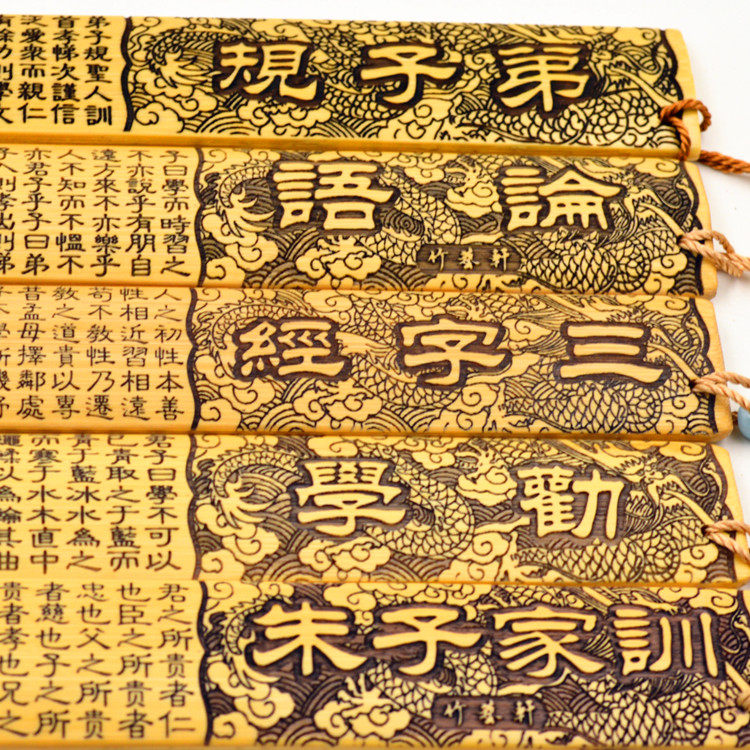 弟子規
弟子規聖人訓
首孝悌次謹信
愛衆而親仁
論語
竹藝軒
子曰學而時習之
不亦說乎有朋自
遠方來不亦樂乎
人不知而不慍不
亦君子乎子曰弟
三字經
人之初性本善
性相近習相遠
苟不教性乃遷
教之道貴以專
昔孟母擇鄰處
勸學
君子曰學不可以
已青取之于藍而
青于藍冰水為之
而寒于水木直中
以為輪其曲
朱子家訓
竹藝軒
君之所貴者仁
也臣之所貴者
忠也父之所貴
者慈也子之所
貴者孝也兄之